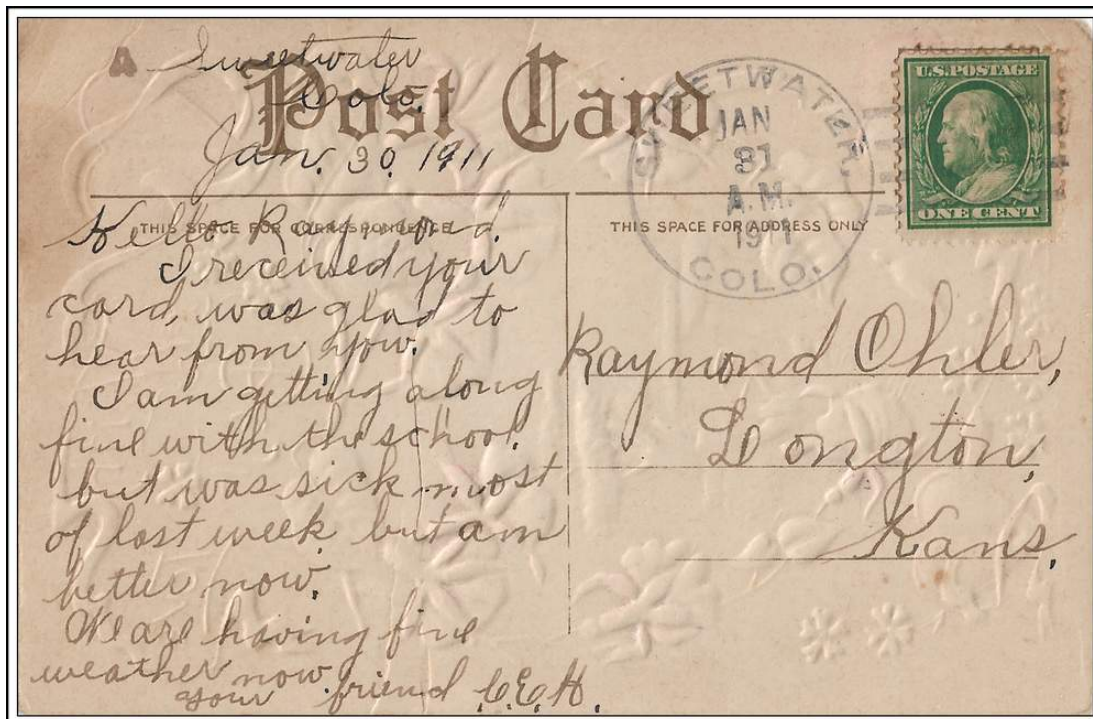 A Sweetwater
Colo.
Post Card
Jan. 30, 1911
SWEETWATER.
JAN
31
A.M.
1911
COLO.
U.S. POSTAGE
ONE CENT
THIS SPACE FOR CORRESPONDENCE
THIS SPACE FOR ADDRESS ONLY
Hello Raymond.
I received your
card, was glad to
hear from you.
I am getting along
fine with the school,
but was sick most
of last week but am
better now.
We are having fine
weather now
your friend C.E.H.
Raymond Ohler,
Longton,
Kans.